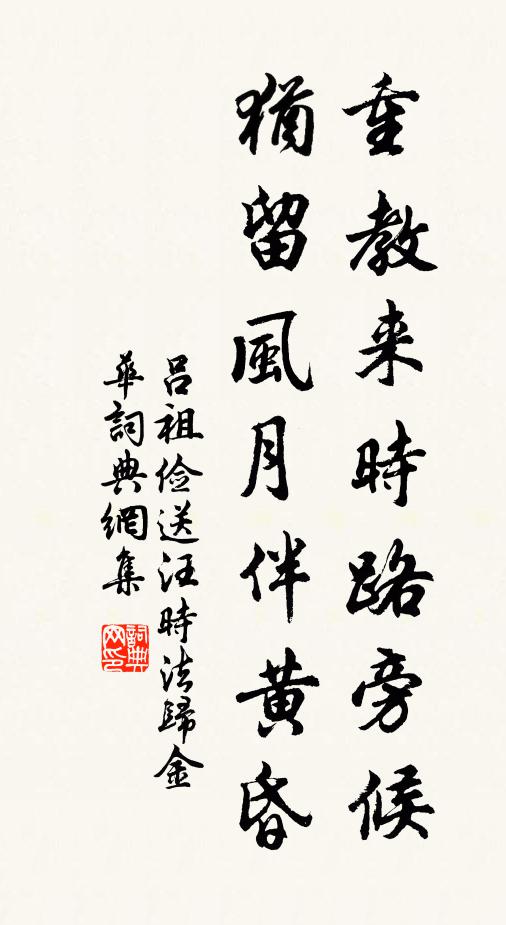 重教来時路旁候
猶留風月伴黄昏
吕祖儉送汪時法歸金
華詞典網集
詞典
网印